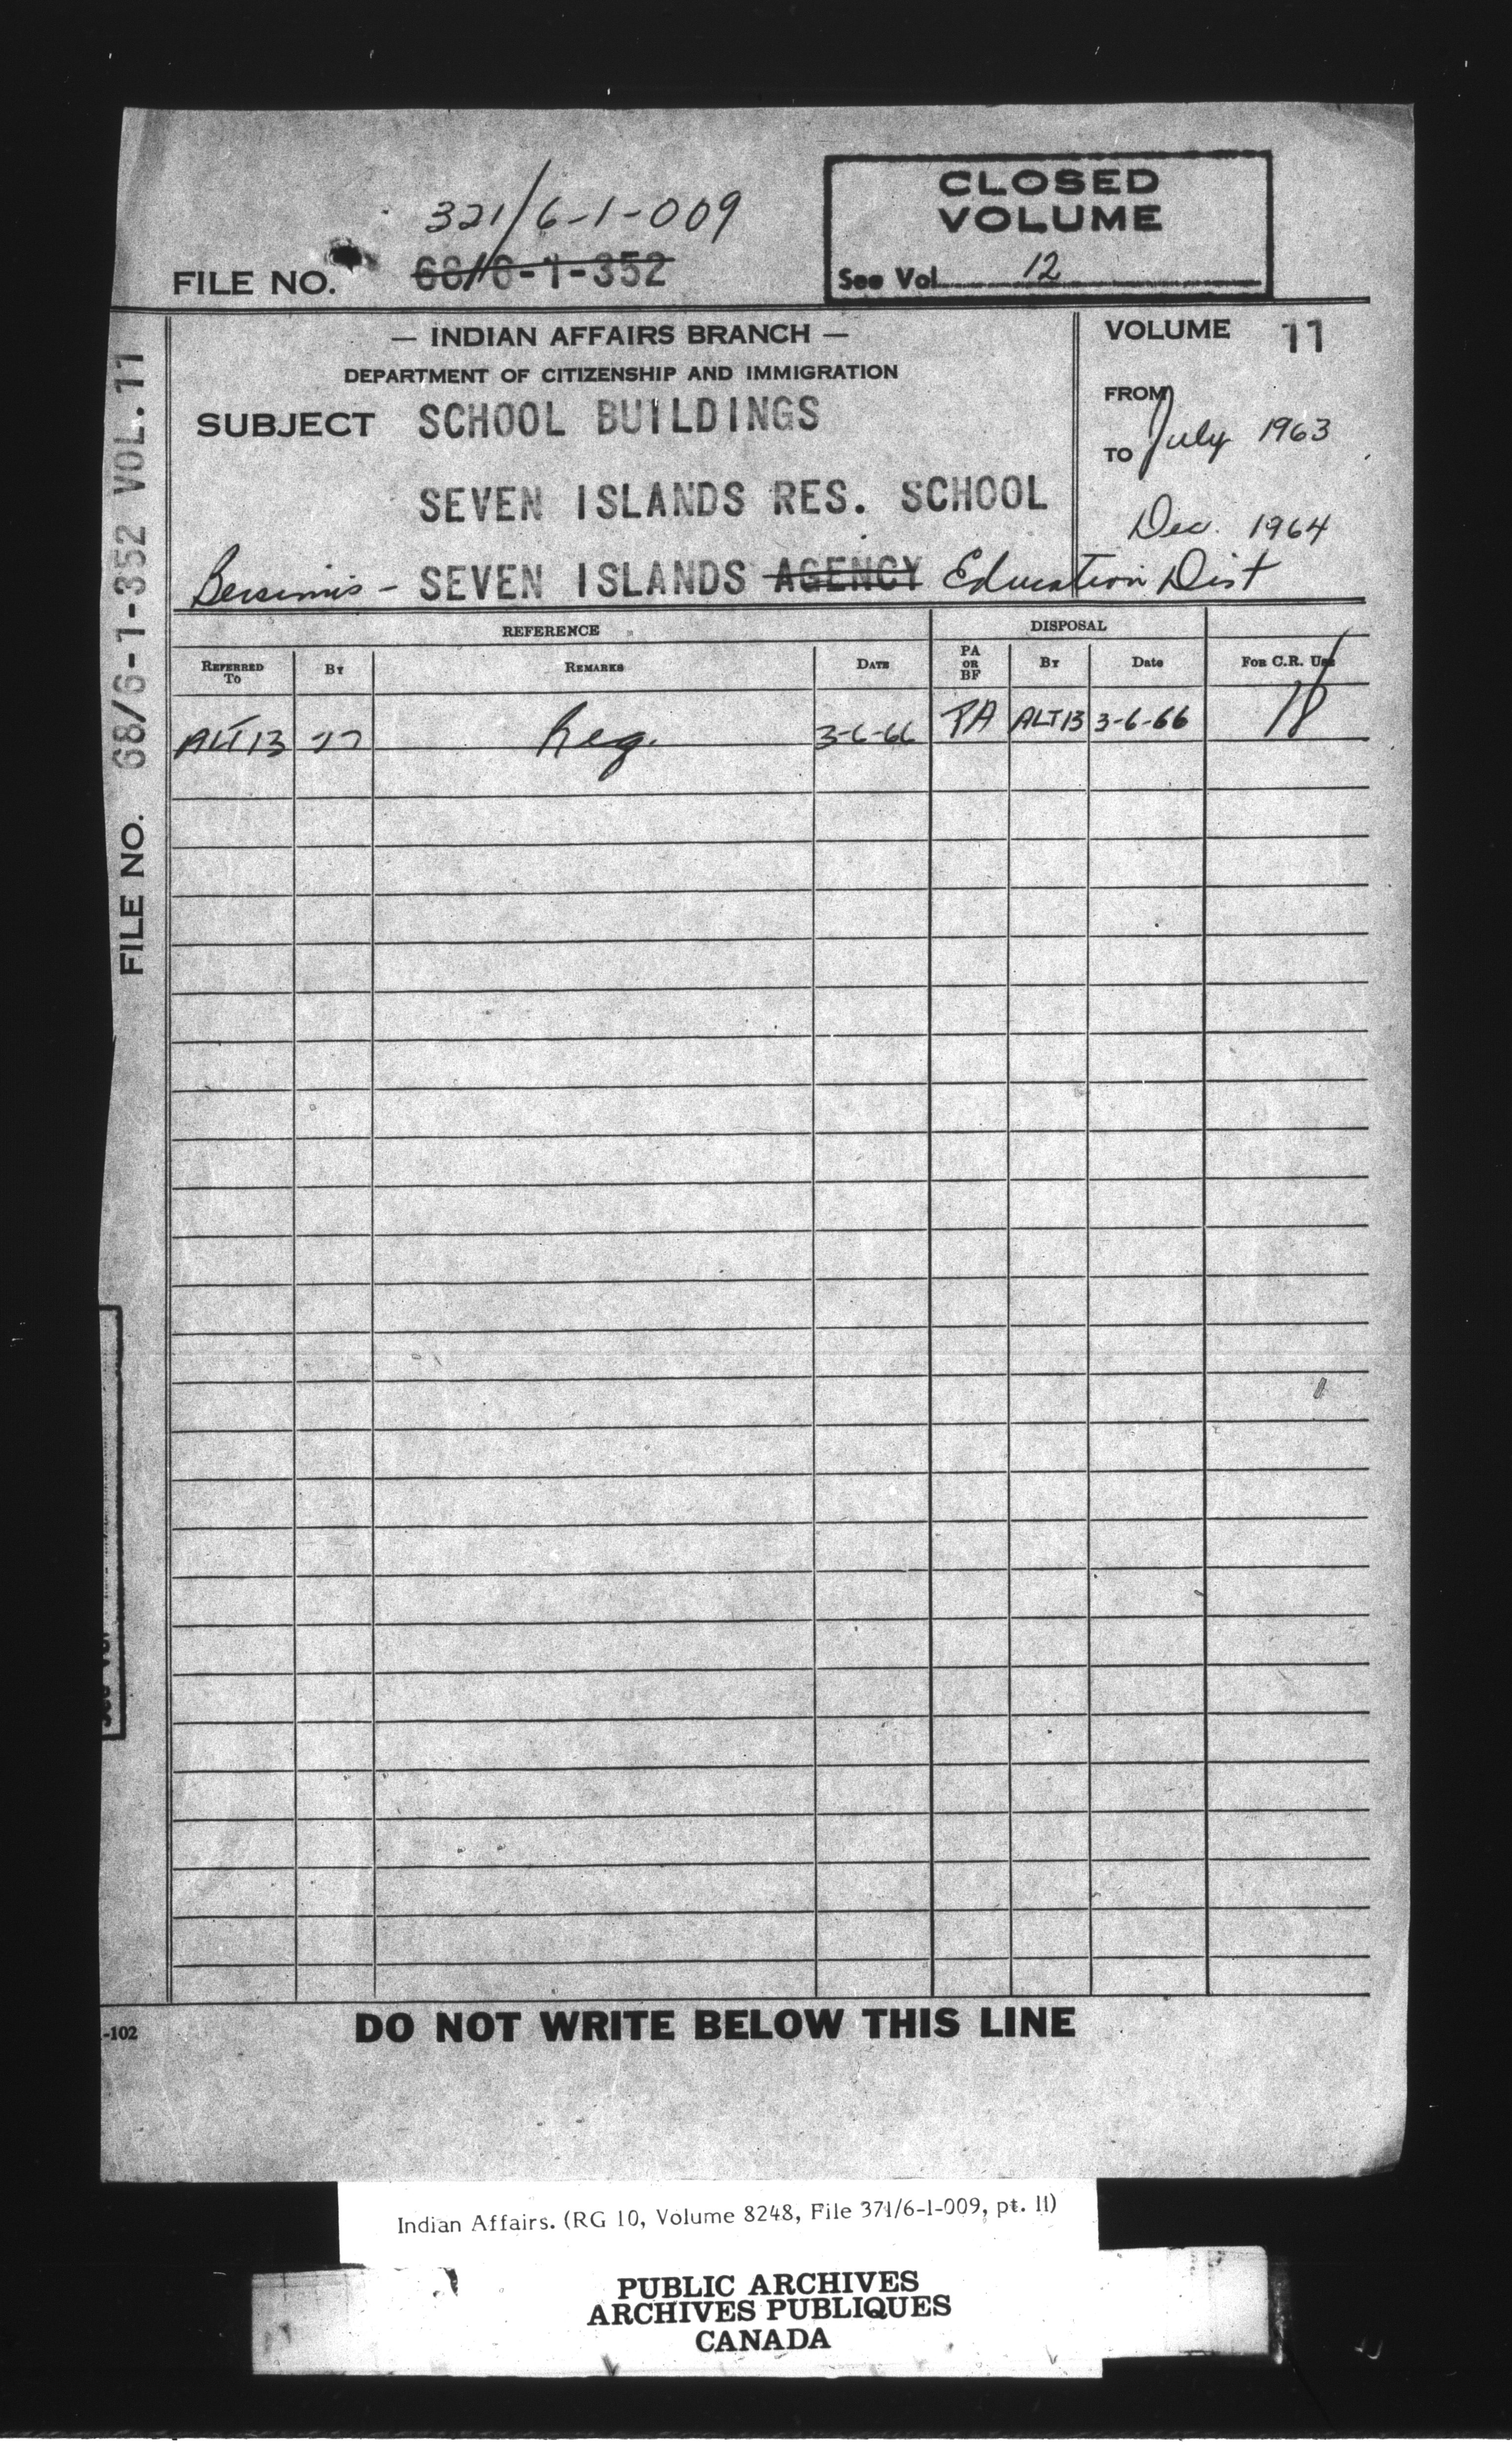 321/6-1-009
FILE NO. 68/6-1-352
CLOSED
VOLUME
See Vol. 12
— INDIAN AFFAIRS BRANCH —
DEPARTMENT OF CITIZENSHIP AND IMMIGRATION
SUBJECT SCHOOL BUILDINGS
SEVEN ISLANDS RES. SCHOOL
Bersimis - SEVEN ISLANDS AGENCY Education Dist
VOLUME 11
FROM July 1963
TO
Dec. 1964
FILE NO. 68/6-1-352 VOL. 11
REFERENCE DISPOSAL
REFERRED TO BY REMARKS DATE PA OR BF BY DATE FOR C.R. USE
ALT 13 Reg. 3-6-66 PA ALT 13 3-6-66
-102
DO NOT WRITE BELOW THIS LINE
Indian Affairs. (RG 10, Volume 8248, File 371/6-1-009, pt. 11)
PUBLIC ARCHIVES
ARCHIVES PUBLIQUES
CANADA